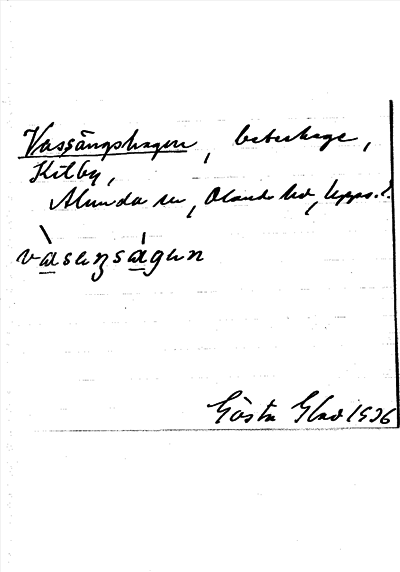 Vassängshagen, beteshage,
Kilby,
Alunda sn, Olands hd, Upps. l.
vàsaŋságan
Gösta Glad 1936